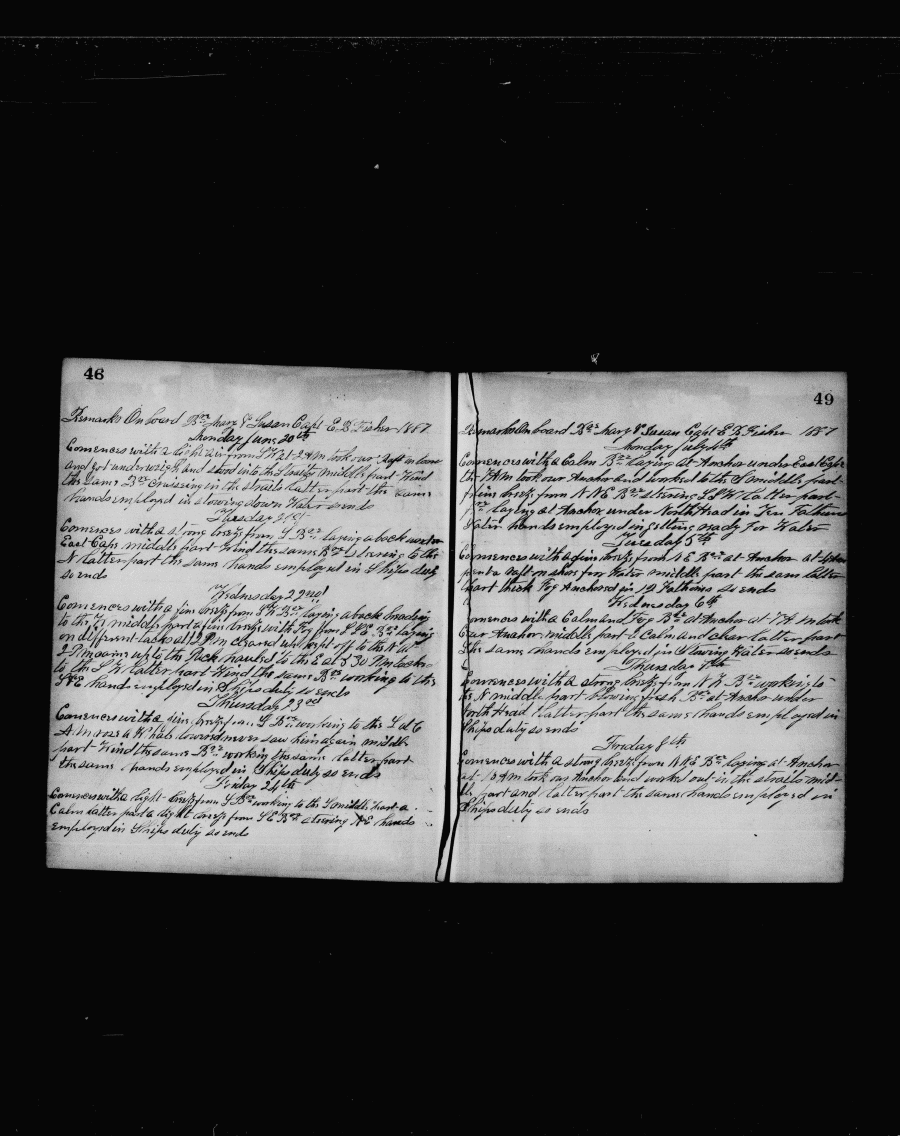 46
Remarks On board Bn Mary & Susan Capt E. B. Fisher 1887
Monday June 20th
Comences with a light air from S W at 2 AM took our raft in tow
and got underweigh and stood into the Straits middle part Wind
the same Bn Cruiseing in the straits latter part the same
hands employed in stowing down Water so ends
Tuesday 21st
Comences with a strong breeze from S Bn laying aback under
East Cape middle part Wind the same Bn steering to the
N latter part the same hands employed in Ships duty
so ends
Wednesday 22nd
Comences with a fine breeze from S W Bn laying aback heading
to the middle part a fine breeze with Fog from S S E Bn laying
on different tacks at 12 PM cleared up kept off to the N W
2 PM came up to the Pack hauled to the E at 5 30 PM tacked
to the S W latter part Wind the same Bn working to the
hands employed in Ships duty so ends
Thursday 23rd
Comences with a fine breeze from S Bn working to the S at 6
A.M. rose a Whale lowered never saw him again middle
part Wind the same Bn working the same latter part
the same hands employed in Ships duty so ends
Friday 24th
Comences with a light breeze from S Bn working to the S middle part a
Calm latter part a light breeze from S E Bn steering N E hands
employed in Ships duty so ends
49
Remarks On board Bn Mary & Susan Capt E. B. Fisher 1887
Monday July 4th
Comences with a Calm Bn laying At Anchor under East Cape
the 7 AM took our Anchor and worked to the S middle part
fine breeze from N N E Bn steering S S W latter part
Bn laying at Anchor under North Head in Ten Fathoms
Water hands employed in getting ready For Water
Tuesday 5th
Comences with a fine breeze from N E Bn at Anchor at
sent a raft on shore for Water middle part the same latter
part thick Fog Anchored in 12 Fathoms so ends
Wednesday 6th
Comences with a Calm and Fog Bn at Anchor at 7 AM took
Our Anchor middle part Calm and clear latter part
the same hands employed in Stowing Water so ends
Thursday 7th
Comences with a strong breeze from N E Bn working to
the N middle part blowing fresh Bn at Anchor under
North Head latter part the same hands employed in
Ships duty so ends
Friday 8th
Comences with a strong breeze from N N E Bn laying at Anchor
at AM took our Anchor and worked out in the straits mid-
dle part and latter part the same hands employed in
Ships duty so ends